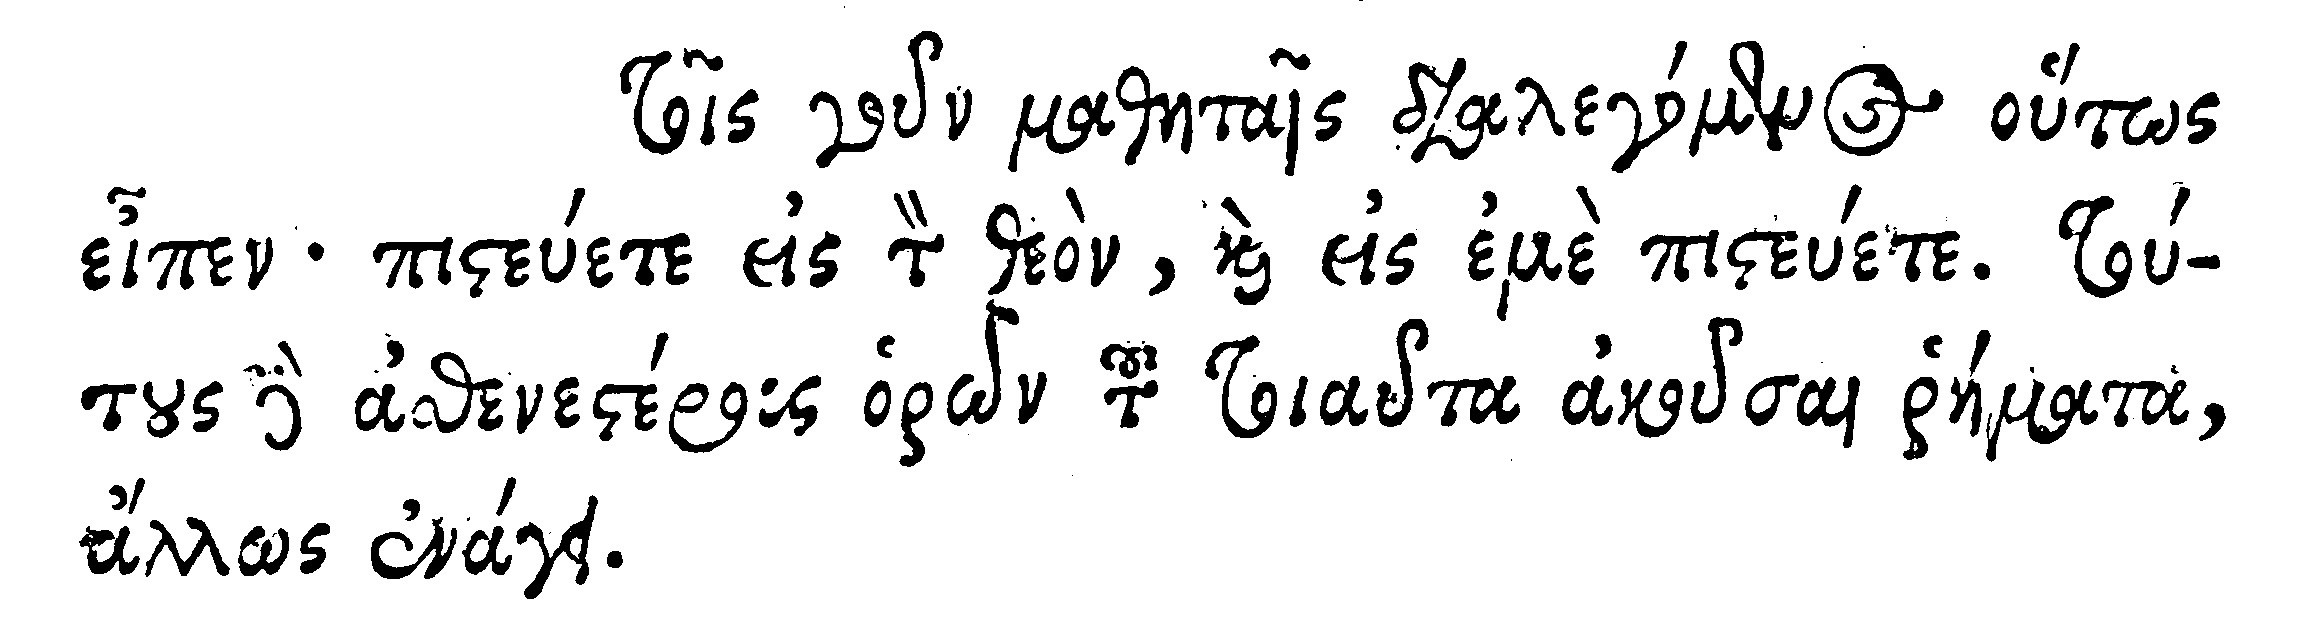 Τοῖς γοῦν μαθηταῖς διαλεγόμενος οὕτως
εἶπεν· πιστεύετε εἰς τὸν θεὸν, καὶ εἰς ἐμὲ πιστεύετε. Τού-
τους δὲ ἀσθενεστέρους ὁρῶν τοῦ τοιαῦτα ἀκοῦσαι ῥήματα,
ἄλλως ἐνάγει.